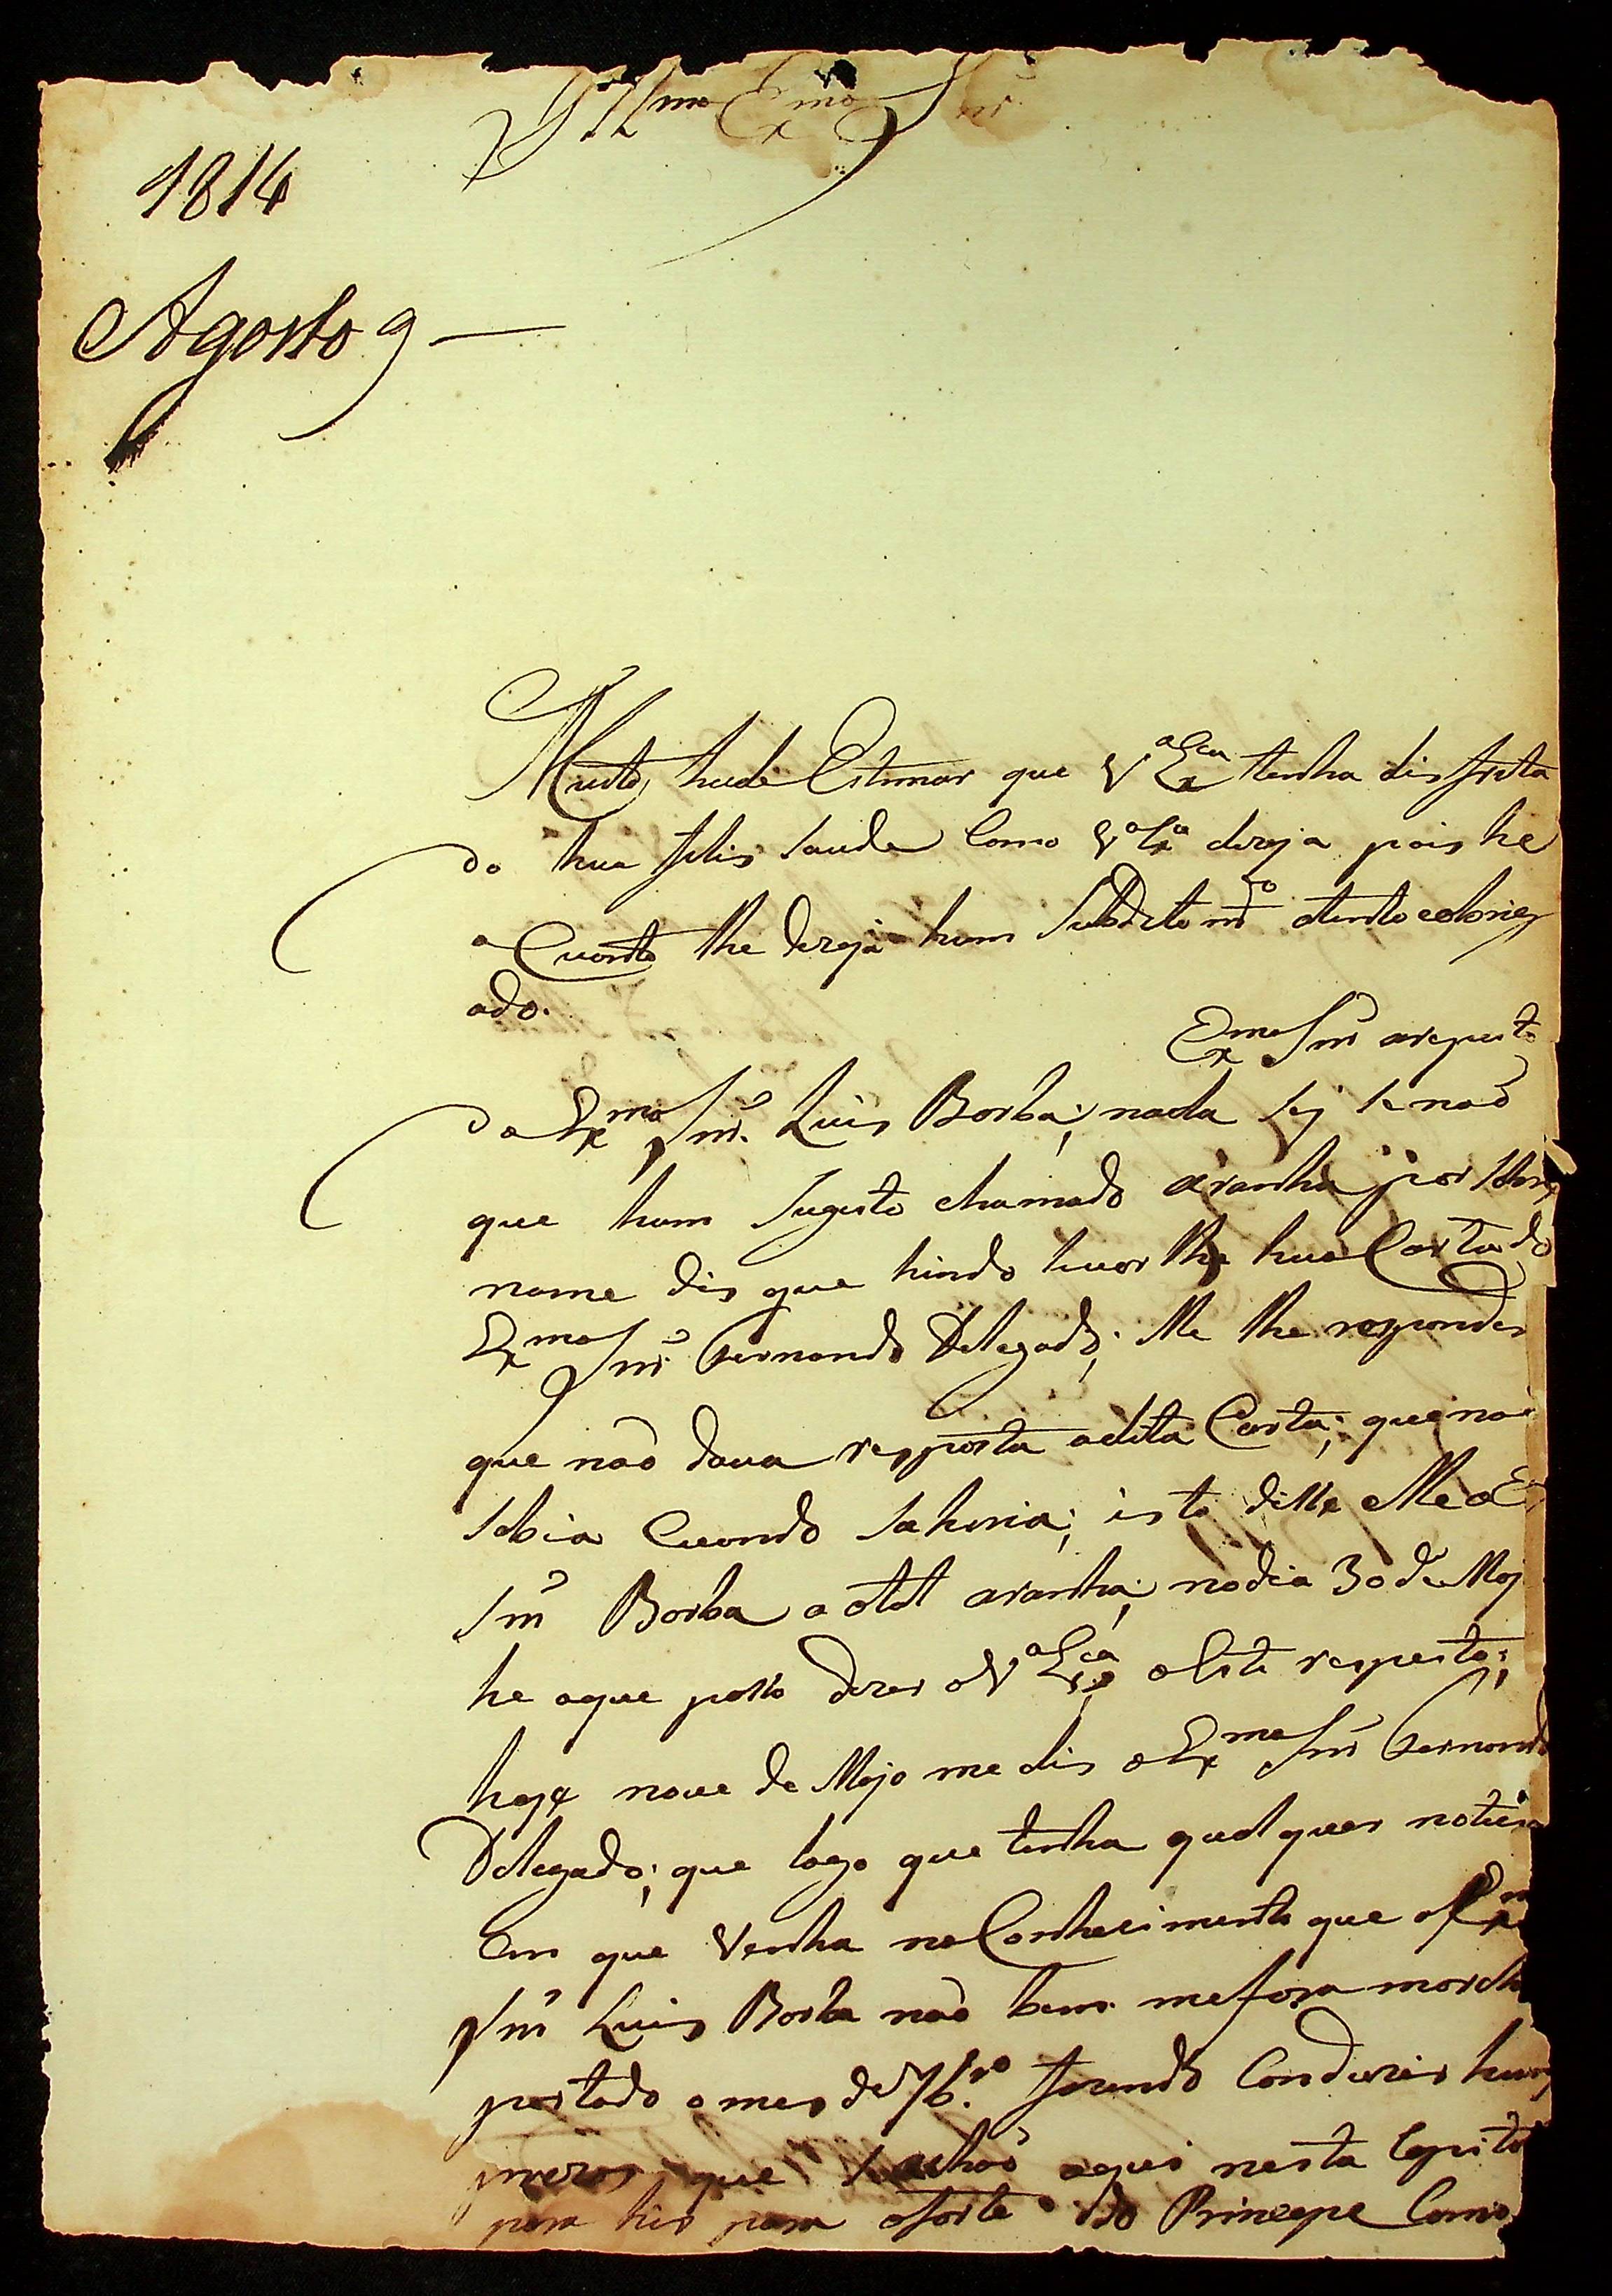 Illmo Exmo Snr
1814
Agosto 9
Muito hude Estimar que Va Exca tenha disfruta
do hua felis saude Como Va Exa dezeja pois he
a Cuanto lhe dezeja hum Subdito mto atento e obrig
ado.
Exmo Snr arespeito
do Exmo Snr. Luis Borba; nada sej senaõ
que hum sugeito chamado aranha por
nome dis que hindo levar lhe hua Carta do
Exmo Snr Fernando Delegado; elle lhe respondeo
que naõ dava resposta adita Carta; que naõ
sabia Cuando sahiria; isto disse elle o E
Snr Borba a tal aranha; nodia 30 de Maj
he aque posso dizer a Va Exca a Este respeito;
hoje nove de Majo me dis o Exmo Snr Fernando
Delegado; que logo que tenha qualquer noticia
Em que Venha no Conhecimento que o Exm
Snr Luis Borba naõ tem marcha
portado o mes de 7bro. fazendo Conduzir huns
prezos que se achaõ aqui nesta Capita
para hir para oforte do Principe Como